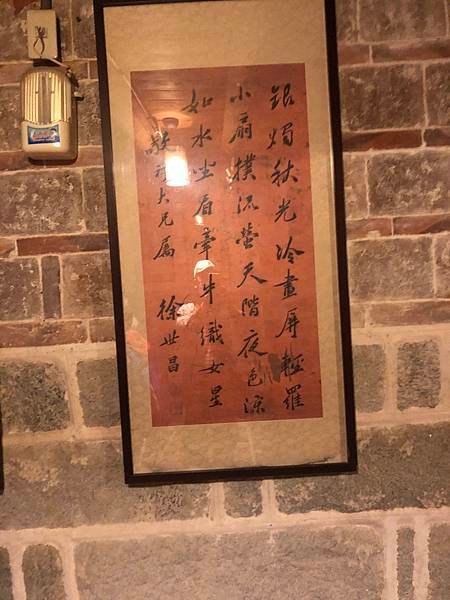 銀燭秋光冷畫屏輕羅
小扇撲流螢天階夜色涼
如水坐看牽牛織女星
大兄屬 徐世昌